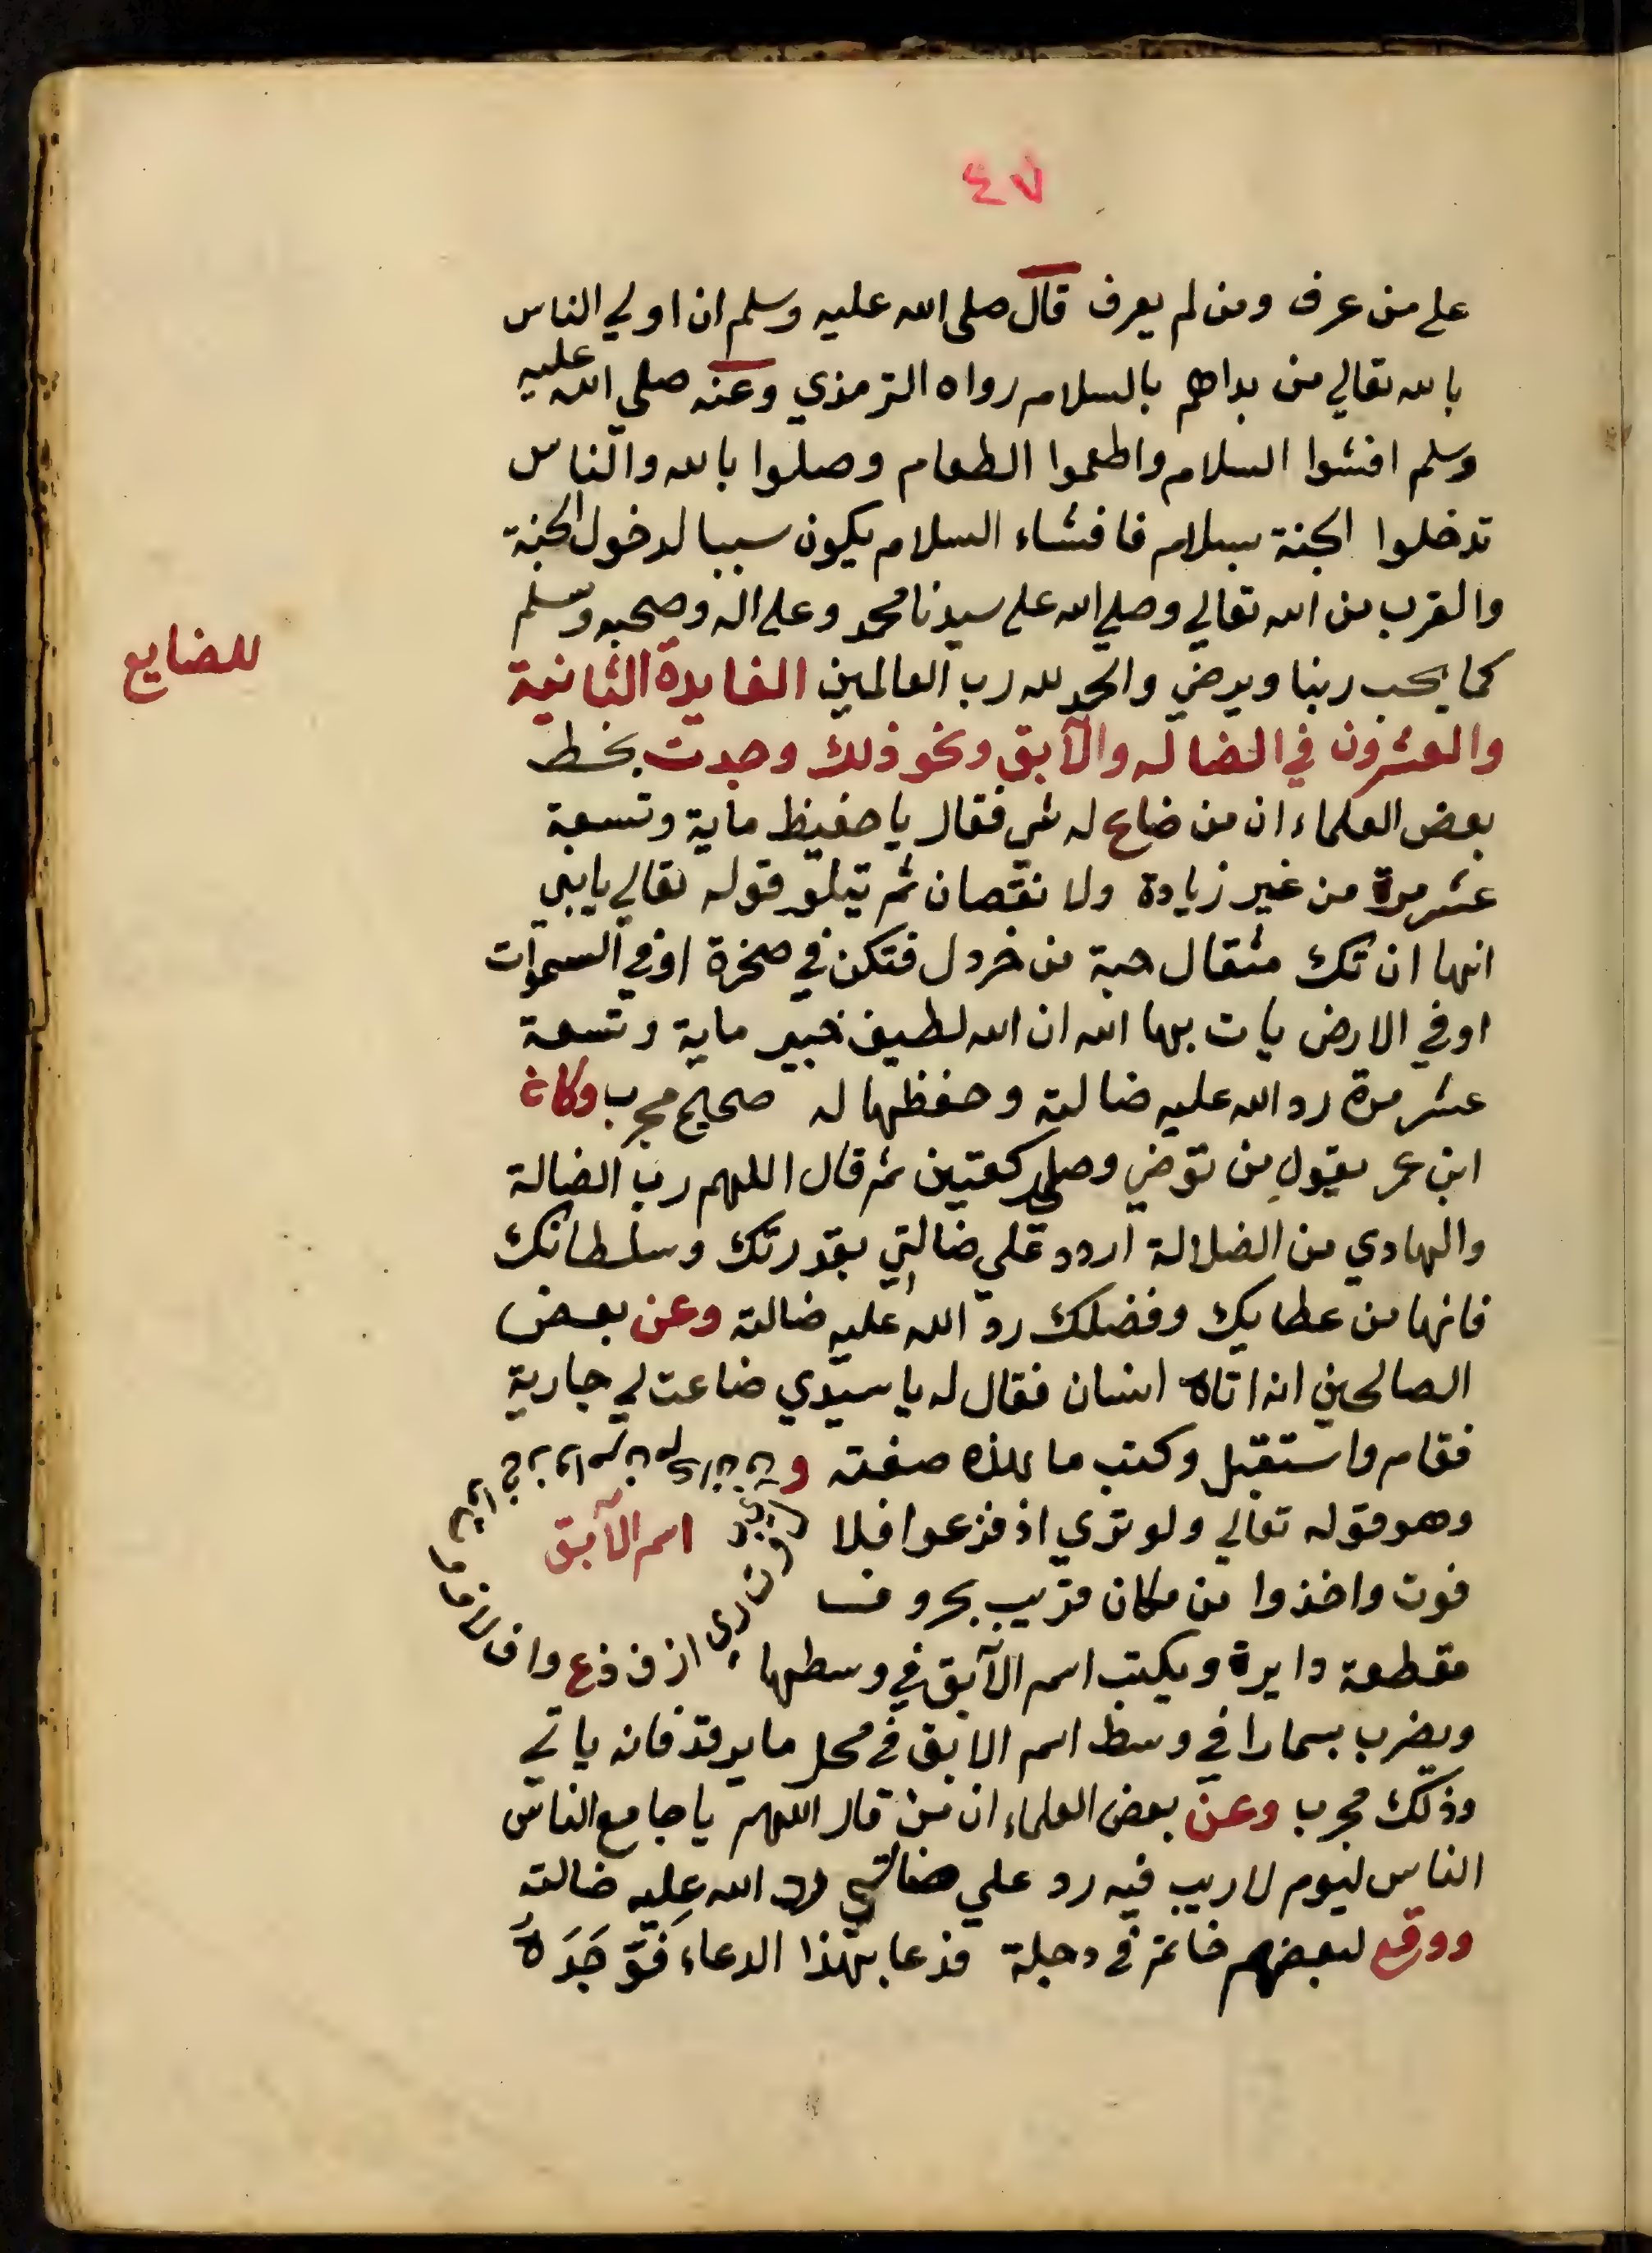 ٤٧
على من عرف ومن لم يعرف قال صلى الله عليه وسلم ان اولي الناس
بالله تعالي من بداهم بالسلام رواه الترمذي وعنه صلي الله عليه
وسلم افشوا السلام واطعموا الطعام وصلوا بالله والناس
تدخلوا الجنة بسلام فافشاء السلام يكون سببا لدخول الجنة
والقرب من الله تعالي وصلي الله على سيدنا محمد وعلى اله وصحبه وسلم
للضايع
كما يحب ربنا ويرضي والحمد لله رب العالمين الفايدة الثانية
والعشرون في الضاله والآبق ونحو ذلك وجدت بخط
بعض العلماء ان من ضاع له شي فقال يا حفيظ ماية وتسعة
عشر مرة من غير زيادة ولا نقصان ثم تيلو قوله تعالي يابني
انها ان تك مثقال حبة من خردل فتكن في صخرة او في السموات
او في الارض يات بها الله ان الله لطيف خبير ماية وتسعة
عشر مرة رد الله عليه ضالته وحفظها له صحيح مجرب وكان
ابن عمر يقول من توضي وصلي ركعتين ثم قال اللهم رب الضالة
والهادي من الضلالة اردد علي ضالتي بقدرتك وسلطانك
فانها من عطايك وفضلك رد الله عليه ضالته وعن بعض
الصالحين انه اتاه انسان فقال له يا سيدي ضاعت لي جارية
فقام واستقبل وكتب ما هذه صفته و
وهو قوله تعالي ولو تري اذ فزعوا فلا
اسم الآبق
فوت واخذوا من مكان قريب بحروف
مقطعة دايرة ويكتب اسم الآبق في وسطها
ويضرب بسمارا في وسط اسم الابق في محل ما يرقد فانه ياتي
وذلك مجرب وعن بعض العلماء ان من قال اللهم يا جامع الناس
الناس ليوم لا ريب فيه رد علي ضالتي رد الله عليه ضالته
ووقع لبعضهم خاتم في دجلة فدعا بهذا الدعاء فَوَجَدَهُ